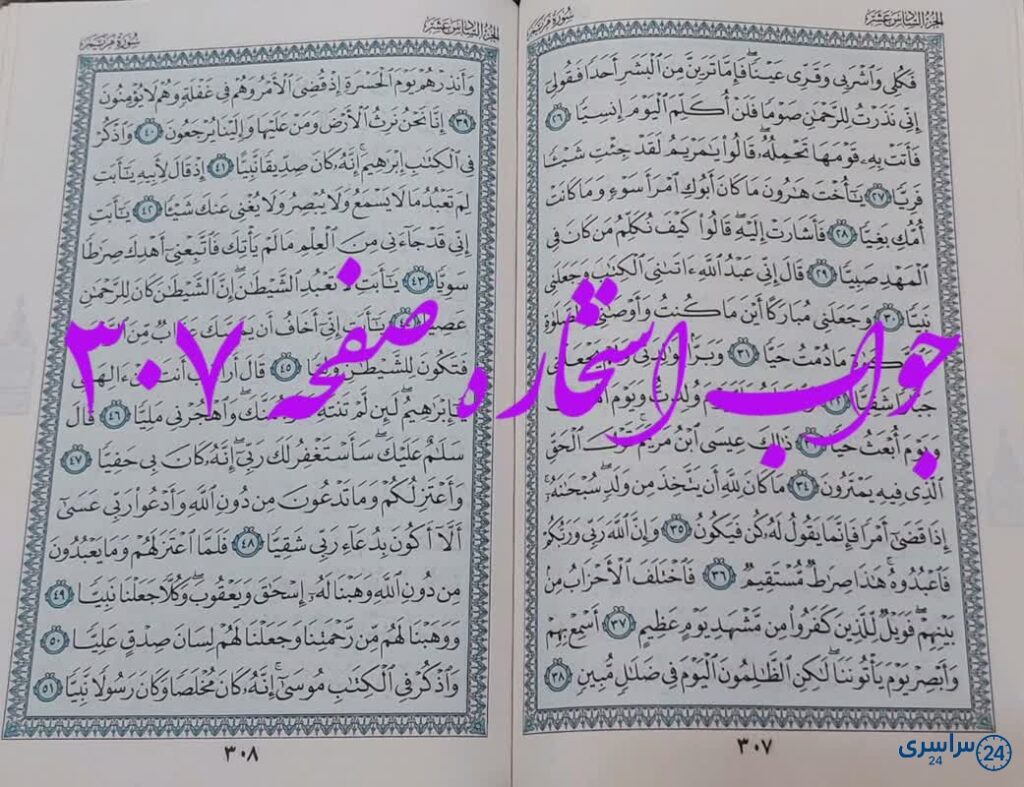 الجزء السادس عشر
سورة مريم
فَكُلِي وَاشْرَبِي وَقَرِّي عَيْنًا ۖ فَإِمَّا تَرَيِنَّ مِنَ الْبَشَرِ أَحَدًا فَقُولِي
إِنِّي نَذَرْتُ لِلرَّحْمَٰنِ صَوْمًا فَلَنْ أُكَلِّمَ الْيَوْمَ إِنسِيًّا ٢٦
فَأَتَتْ بِهِ قَوْمَهَا تَحْمِلُهُ ۖ قَالُوا يَا مَرْيَمُ لَقَدْ جِئْتِ شَيْئًا
فَرِيًّا ٢٧ يَا أُخْتَ هَارُونَ مَا كَانَ أَبُوكِ امْرَأَ سَوْءٍ وَمَا كَانَتْ
أُمُّكِ بَغِيًّا ٢٨ فَأَشَارَتْ إِلَيْهِ ۖ قَالُوا كَيْفَ نُكَلِّمُ مَن كَانَ فِي
الْمَهْدِ صَبِيًّا ٢٩ قَالَ إِنِّي عَبْدُ اللَّهِ آتَانِيَ الْكِتَابَ وَجَعَلَنِي
نَبِيًّا ٣٠ وَجَعَلَنِي مُبَارَكًا أَيْنَ مَا كُنتُ وَأَوْصَانِي بِالصَّلَاةِ
مَا دُمْتُ حَيًّا ٣١ وَبَرًّا بِوَالِدَتِي وَلَمْ يَجْعَلْنِي
جَبَّارًا شَقِيًّا ٣٢ يَوْمَ وُلِدتُّ وَيَوْمَ أَمُوتُ
وَيَوْمَ أُبْعَثُ حَيًّا ٣٣ ذَٰلِكَ عِيسَى ابْنُ مَرْيَمَ ۚ قَوْلَ الْحَقِّ
الَّذِي فِيهِ يَمْتَرُونَ ٣٤ مَا كَانَ لِلَّهِ أَن يَتَّخِذَ مِن وَلَدٍ ۖ سُبْحَانَهُ ۚ
إِذَا قَضَىٰ أَمْرًا فَإِنَّمَا يَقُولُ لَهُ كُن فَيَكُونُ ٣٥ وَإِنَّ اللَّهَ رَبِّي وَرَبُّكُمْ
فَاعْبُدُوهُ ۚ هَٰذَا صِرَاطٌ مُّسْتَقِيمٌ ٣٦ فَاخْتَلَفَ الْأَحْزَابُ مِن
بَيْنِهِمْ ۖ فَوَيْلٌ لِّلَّذِينَ كَفَرُوا مِن مَّشْهَدِ يَوْمٍ عَظِيمٍ ٣٧ أَسْمِعْ بِهِمْ
وَأَبْصِرْ يَوْمَ يَأْتُونَنَا ۖ لَٰكِنِ الظَّالِمُونَ الْيَوْمَ فِي ضَلَالٍ مُّبِينٍ ٣٨
٣٠٧
الجزء السادس عشر
سورة مريم
وَأَنذِرْهُمْ يَوْمَ الْحَسْرَةِ إِذْ قُضِيَ الْأَمْرُ وَهُمْ فِي غَفْلَةٍ وَهُمْ لَا يُؤْمِنُونَ
٣٩ إِنَّا نَحْنُ نَرِثُ الْأَرْضَ وَمَنْ عَلَيْهَا وَإِلَيْنَا يُرْجَعُونَ ٤٠ وَاذْكُرْ
فِي الْكِتَابِ إِبْرَاهِيمَ ۚ إِنَّهُ كَانَ صِدِّيقًا نَّبِيًّا ٤١ إِذْ قَالَ لِأَبِيهِ يَا أَبَتِ
لِمَ تَعْبُدُ مَا لَا يَسْمَعُ وَلَا يُبْصِرُ وَلَا يُغْنِي عَنكَ شَيْئًا ٤٢ يَا أَبَتِ
إِنِّي قَدْ جَاءَنِي مِنَ الْعِلْمِ مَا لَمْ يَأْتِكَ فَاتَّبِعْنِي أَهْدِكَ صِرَاطًا
سَوِيًّا ٤٣ يَا أَبَتِ لَا تَعْبُدِ الشَّيْطَانَ ۖ إِنَّ الشَّيْطَانَ كَانَ لِلرَّحْمَٰنِ
عَصِيًّا ٤٤ يَا أَبَتِ إِنِّي أَخَافُ أَن يَمَسَّكَ عَذَابٌ مِّنَ
فَتَكُونَ لِلشَّيْطَانِ وَلِيًّا ٤٥ قَالَ أَرَاغِبٌ أَنتَ عَنْ آلِهَتِي
يَا إِبْرَاهِيمُ ۖ لَئِن لَّمْ تَنتَهِ لَأَرْجُمَنَّكَ ۖ وَاهْجُرْنِي مَلِيًّا ٤٦ قَالَ
سَلَامٌ عَلَيْكَ ۖ سَأَسْتَغْفِرُ لَكَ رَبِّي ۖ إِنَّهُ كَانَ بِي حَفِيًّا ٤٧
وَأَعْتَزِلُكُمْ وَمَا تَدْعُونَ مِن دُونِ اللَّهِ وَأَدْعُو رَبِّي عَسَىٰ
أَلَّا أَكُونَ بِدُعَاءِ رَبِّي شَقِيًّا ٤٨ فَلَمَّا اعْتَزَلَهُمْ وَمَا يَعْبُدُونَ
مِن دُونِ اللَّهِ وَهَبْنَا لَهُ إِسْحَاقَ وَيَعْقُوبَ ۖ وَكُلًّا جَعَلْنَا نَبِيًّا ٤٩
وَوَهَبْنَا لَهُم مِّن رَّحْمَتِنَا وَجَعَلْنَا لَهُمْ لِسَانَ صِدْقٍ عَلِيًّا ٥٠
وَاذْكُرْ فِي الْكِتَابِ مُوسَىٰ ۚ إِنَّهُ كَانَ مُخْلَصًا وَكَانَ رَسُولًا نَّبِيًّا ٥١
٣٠٨
جواب استخاره صفحه ۳۰۷
سراسری 24
24